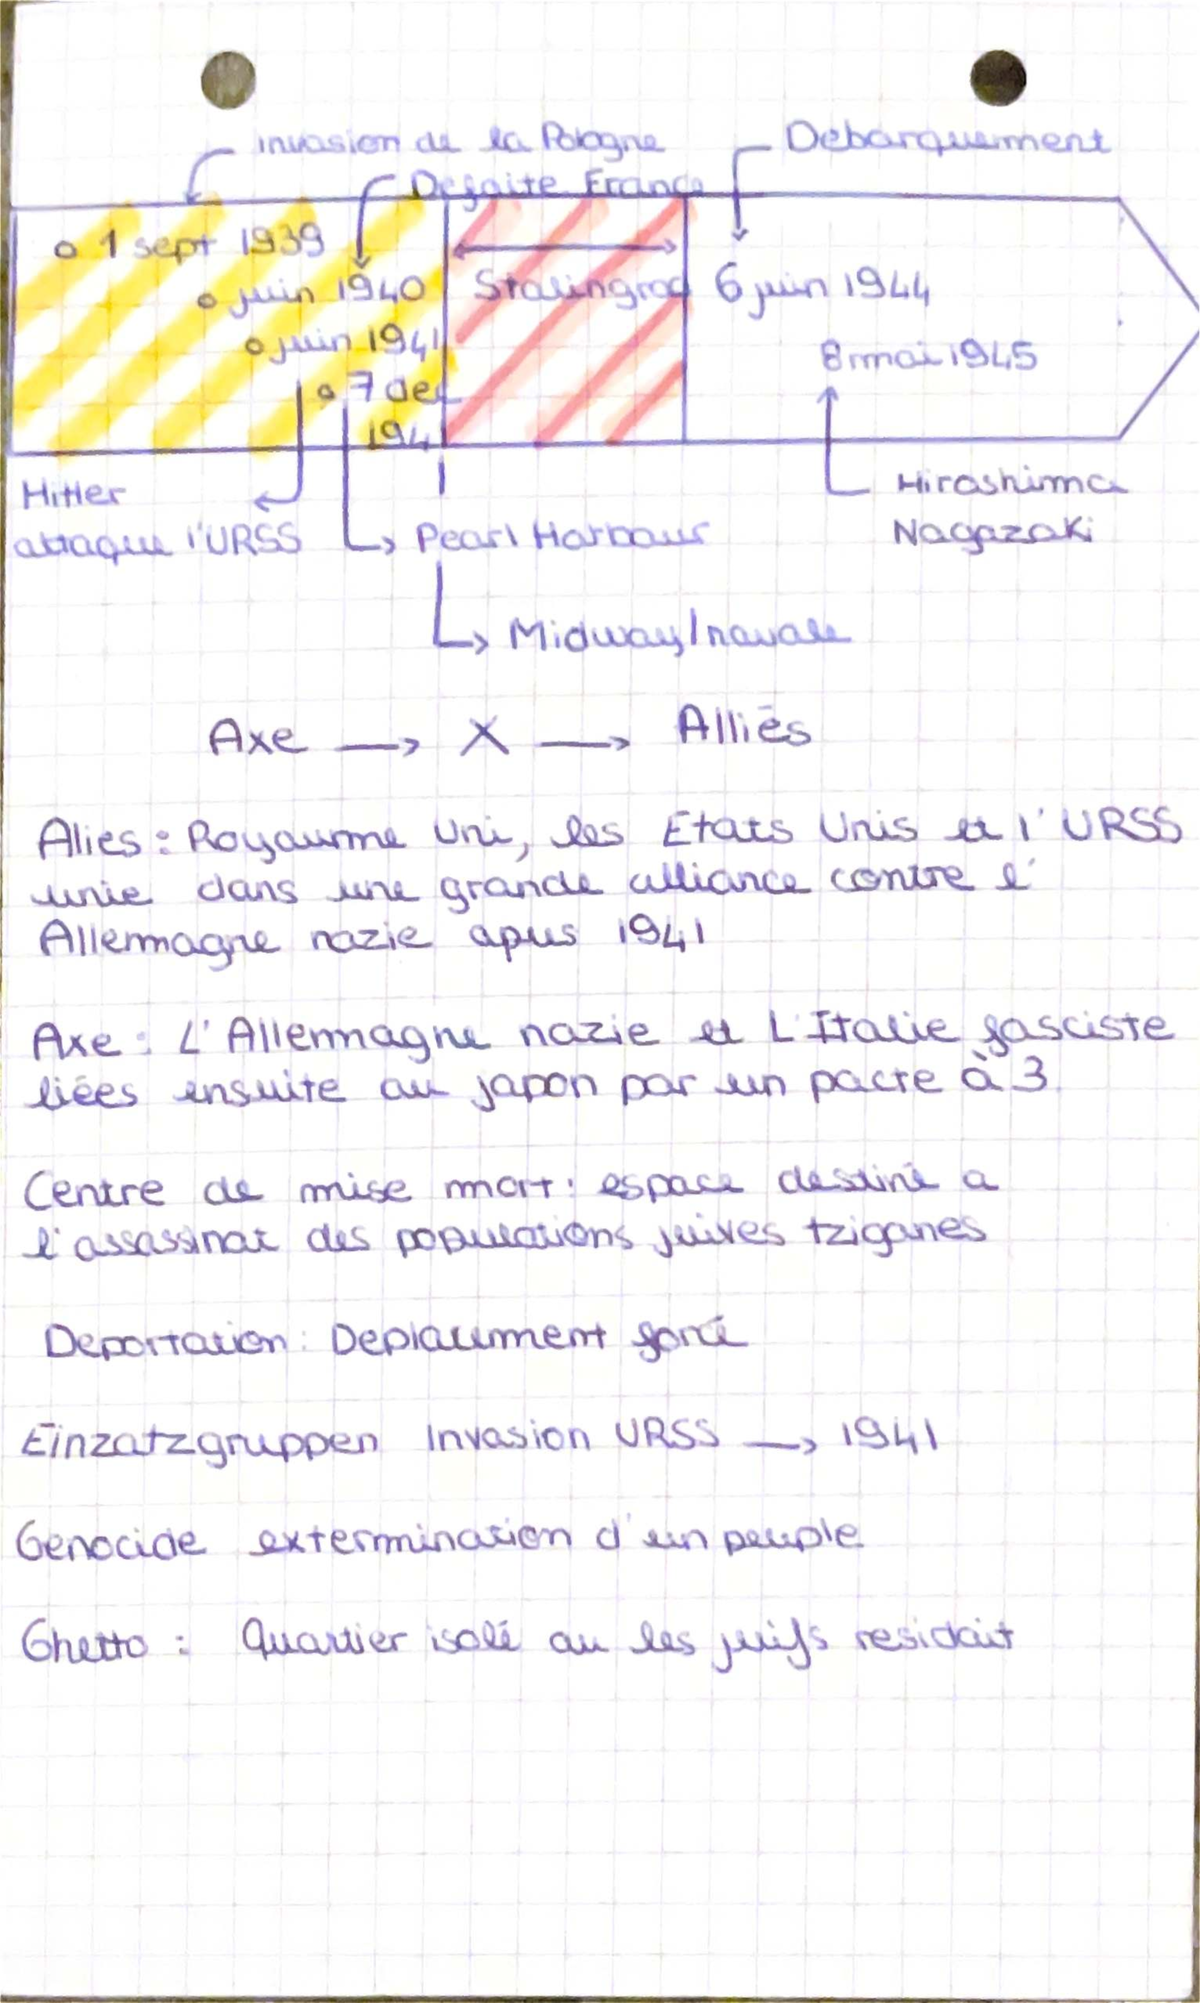 invasion de la Pologne
Debarquement
Defaite France
o 1 sept 1939
o juin 1940
Stalingrad
6 juin 1944
o juin 1941
8 mai 1945
o 7 dec
194
Hitler
attaque l'URSS
Pearl Harbour
Hiroshima
Nagazaki
Midway/navale
Axe → X → Alliés
Alies : Royaume Uni, les Etats Unis et l'URSS
unie dans une grande alliance contre l'
Allemagne nazie apres 1941
Axe : L'Allemagne nazie et L'Italie fasciste
liées ensuite au japon par un pacte à 3
Centre de mise mort : espace destiné a
l'assassinat des populations juives tziganes
Deportation : Deplacement forcé
Einzatzgruppen Invasion URSS → 1941
Genocide extermination d'un peuple
Ghetto : Quartier isolé ou les juifs residait